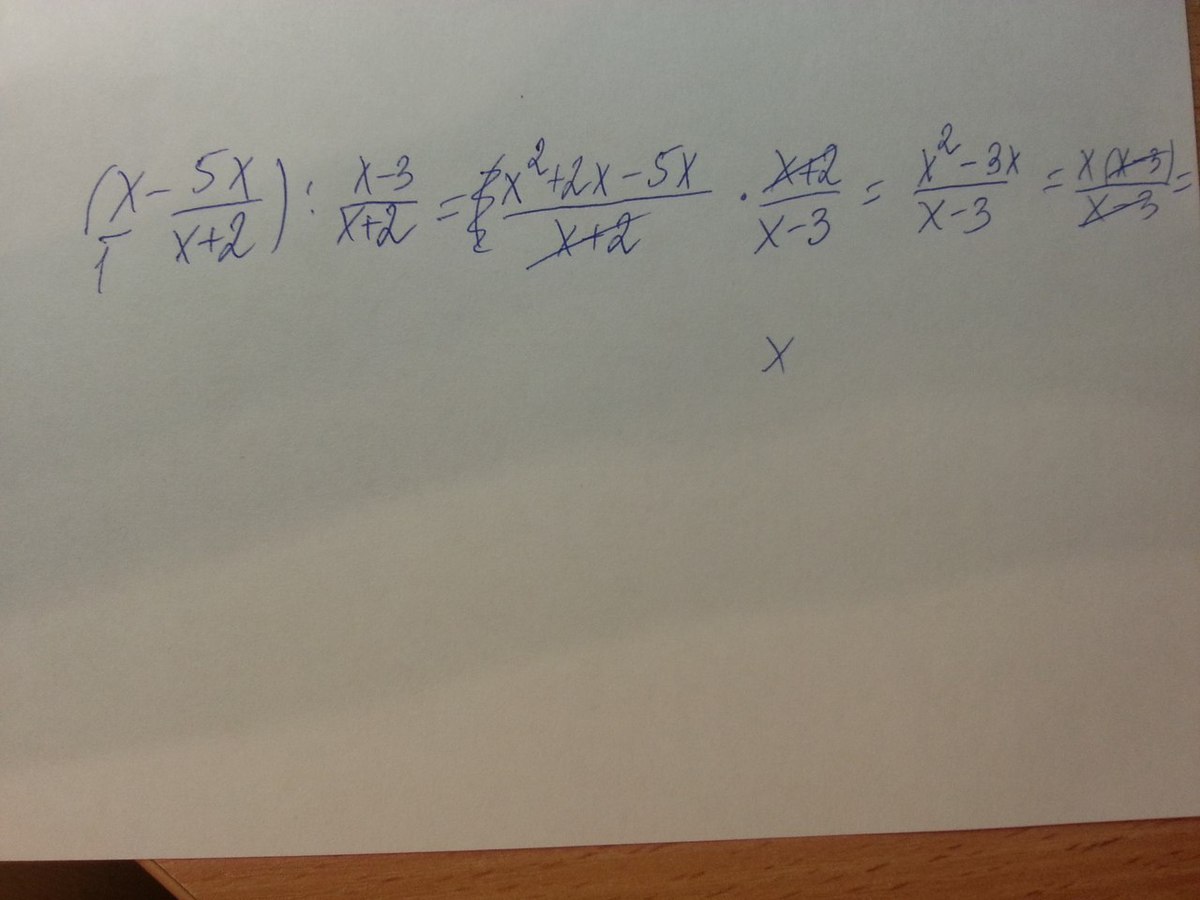 (x/1 - 5x/(x+2)) : (x-3)/(x+2) = (x²+2x-5x)/(x+2) · (x+2)/(x-3) = (x²-3x)/(x-3) = x(x-3)/(x-3) =
x